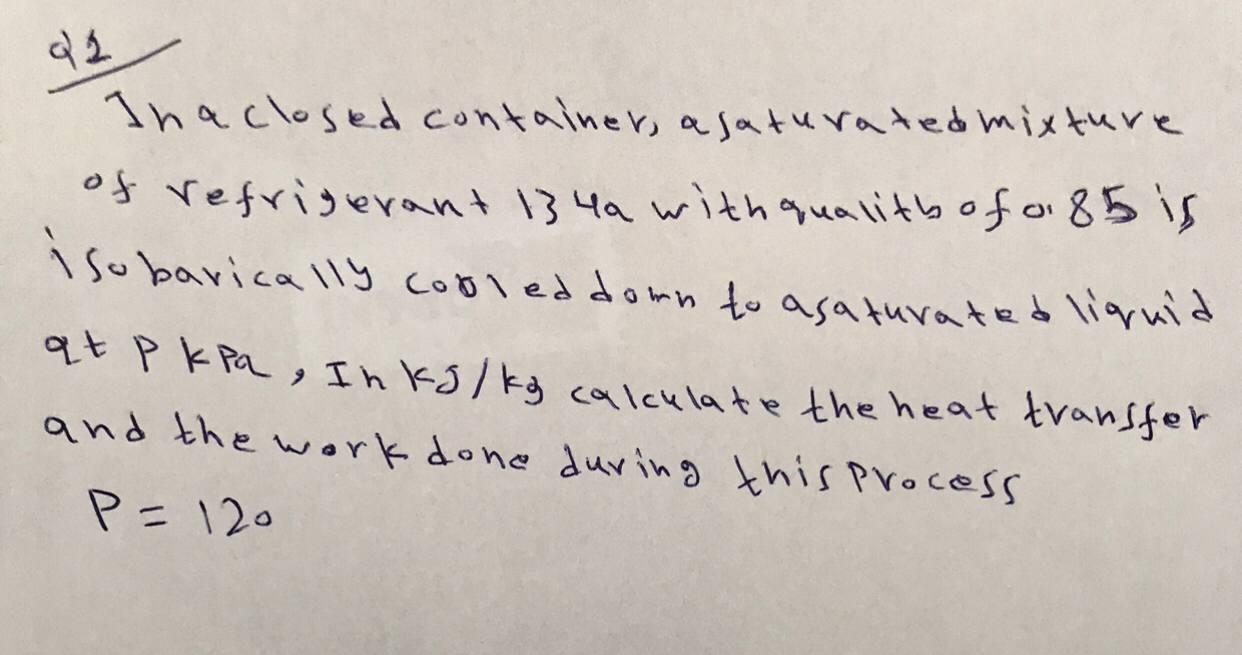 Q1
In a closed container, a saturated mixture
of refrigerant 134a with qualitb of 0.85 is
isobarically cooled down to a saturated liquid
at P kPa, In kJ/kg calculate the heat transfer
and the work done during this process
P = 120